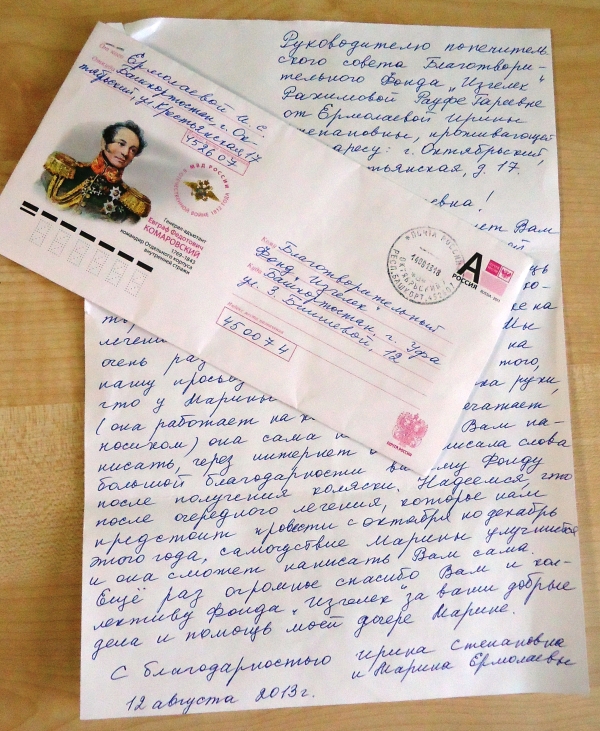 Руководителю попечитель
ского совета Благотвори-
тельного Фонда „Изгелек"
Рахимовой Рауфе Гареевне
от Ермолаевой Ирины
Степановны, проживающей
адресу: г. Октябрьский,
д. 17.
Ермолаевой И. С.
Башкортостан г. Ок-
тябрьский, ул. Крестьянская, 17
452607
МВД РОССИИ
ВОЙНЕ 1812 ГОДА
Генерал-адъютант
Евграф Федотович
КОМАРОВСКИЙ
1769-1843
командир Отдельного корпуса
внутренней стражи
Кому Благотворительный
Фонд „Изгелек"
Куда Башкортостан, г. Уфа
ул. З. Биишевой, 12
450074
ПОЧТА РОССИИ
А
РОССИЯ
ПОЧТА РОССИИ
Вам
на
лечени
Мы
очень
на
нашу просьбу
того,
что у Марины
руки,
(она работает на
печатает
носиком) она сама
Вам на-
писать, через интернет
писала слова
большой благодарности
Фонду
после получения коляски. Надеемся, что
после очередного лечения, которое нам
предстоит провести с октября по декабрь
этого года, самочувствие Марины улучшится
и она сможет написать Вам сама.
Ещё раз огромное спасибо Вам и кол-
лективу Фонда „Изгелек" за ваши добрые
дела и помощь моей дочере Марине.
С благодарностью Ирина Степановна
и Марина Ермолаевы
12 августа 2013 г.